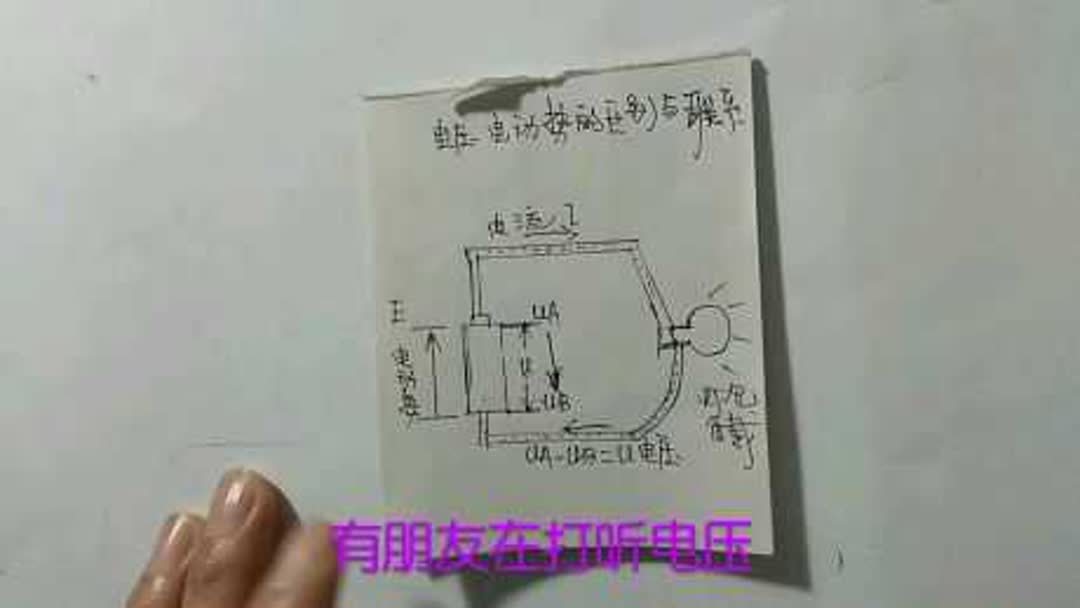 电压电动势的区别与联系
电流I
E
电动势
UA
U
UB
灯泡
负载
UA-UB=U电压
有朋友在打听电压